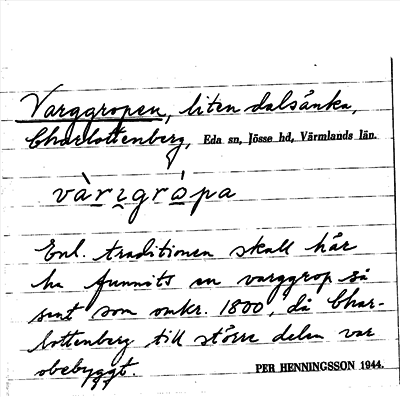 Varggropen, liten dalsänka,
Charlottenberg, Eda sn, Jösse hd, Värmlands län.
vàrɩgró̱pa
Enl. traditionen skall här
ha funnits en varggrop så
sent som omkr. 1800, då Char-
lottenberg till större delen var
obebyggt.
PER HENNINGSSON 1944.